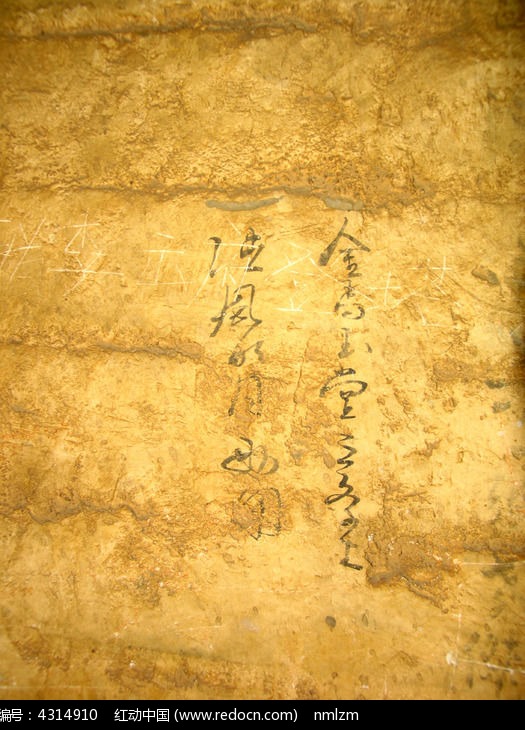 金馬玉堂三学士
清風明月两闲
编号：4314910 红动中国 (www.redocn.com) nmlzm